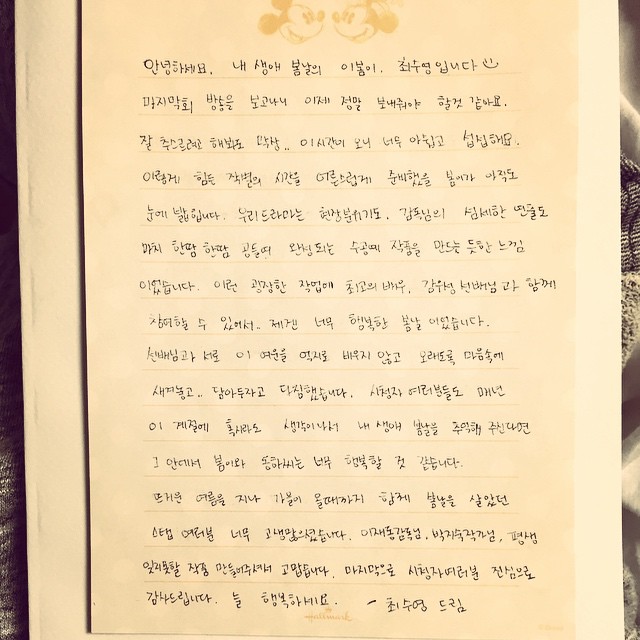 안녕하세요. 내 생애 봄날의 이봄이, 최수영입니다
마지막회 방송을 보고나니 이제 정말 보내줘야 할것 같아요.
잘 추스르려고 해봐도 막상.. 이시간이 오니 너무 아쉽고 섭섭해요.
이렇게 힘든 작별의 시간을 어른스럽게 준비했을 봄이가 아직도
눈에 밟힙니다. 우리드라마는 현장분위기도, 감독님의 섬세한 연출도
마치 한땀 한땀 공들여 완성되는 수공예 작품을 만드는 듯한 느낌
이었습니다. 이런 굉장한 작업에 최고의 배우, 감우성 선배님과 함께
참여할 수 있어서.. 제겐 너무 행복한 봄날이었습니다.
선배님과 서로 이 여운을 억지로 비우지 않고 오래도록 마음속에
새겨놓고.. 담아두자고 다짐했습니다. 시청자 여러분들도 매년
이 계절에 혹시라도 생각이나서 내 생애 봄날을 추억해 주신다면
그 안에서 봄이와 동하씨는 너무 행복할 것 같습니다.
뜨거운 여름을 지나 가을이 올때까지 함께 봄날을 살았던
스탭 여러분 너무 고생많으셨습니다. 이재동감독님, 박지숙작가님, 평생
잊지못할 작품 만들어주셔서 고맙습니다. 마지막으로 시청자여러분 진심으로
감사드립니다. 늘 행복하세요. - 최수영 드림